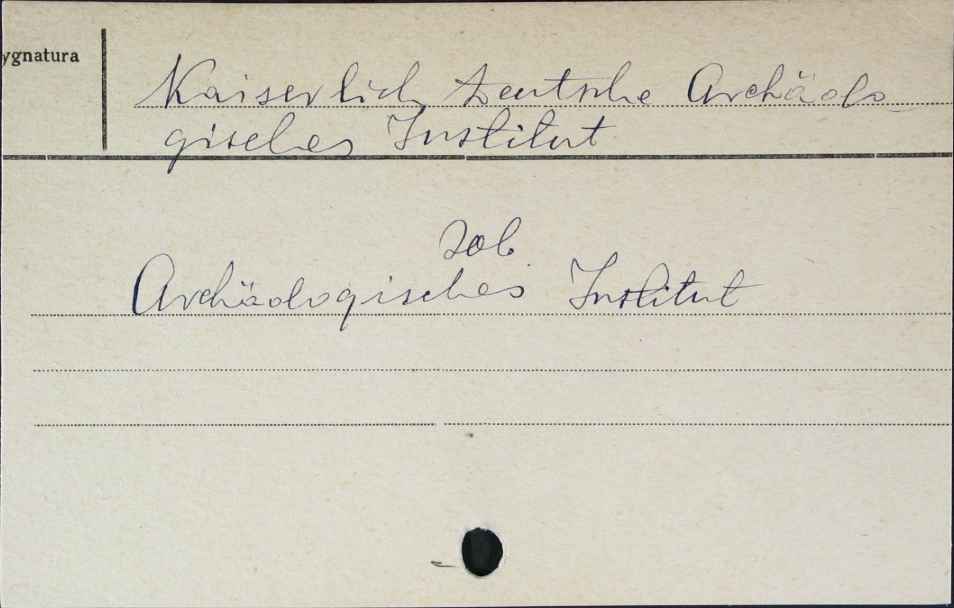 ygnatura
Kaiserlich Deutsche Archäolo
gisches Institut
zob.
Archäologisches Institut